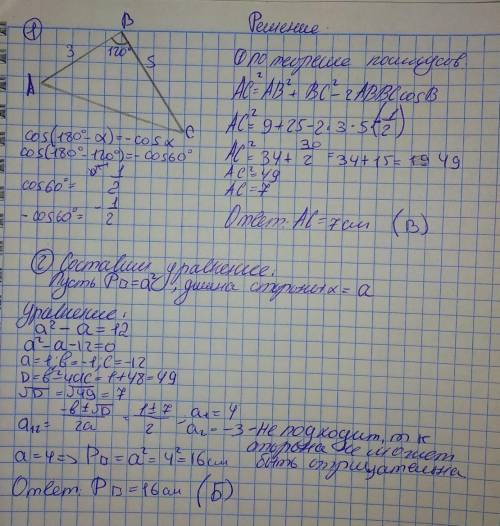 ① B Решение.
3 120° 5
A C
По теореме косинусов
AC²=AB²+BC²-2ABBCcosB
AC²=9+25-2·3·5(-1/2)
AC²=34+30/2=34+15=49
AC²=49
AC=7
Ответ: AC=7см (В)
cos(180°-α)=-cosα
cos(180°-120°)=-cos60°
cos60°=1/2
-cos60°=-1/2
② Составим уравнение.
Пусть P□=a², длина стороны x=a
Уравнение:
a²-a=12
a²-a-12=0
a=1; в=-1; c=-12
D=в²-4ac=1+48=49
√D=√49=7
a₁,₂=-в±√D/2a=1±7/2; a₁=4
a₂=-3-не подходит, т к
сторона не может
быть отрицательна
a=4=>P□=a²=4²=16см
Ответ: P□=16см (Б)